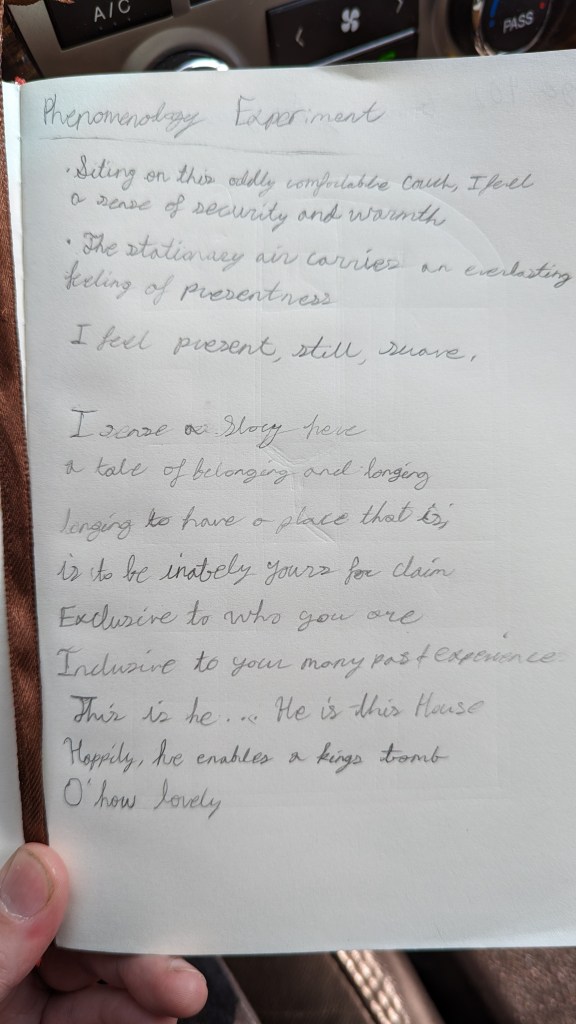 A/C
PASS
Phenomenology Experiment
· Siting on this oddly comfortable couch, I feel
a sense of security and warmth
· The stationary air carries an everlasting
feeling of presentness
I feel present, still, suave.
I sense a story here
a tale of belonging and longing
longing to have a place that is,
is to be inately yours for claim
Exclusive to who you are
Inclusive to your many past experience
This is he... He is this House
Happily, he enables a kings tomb
O' how lovely